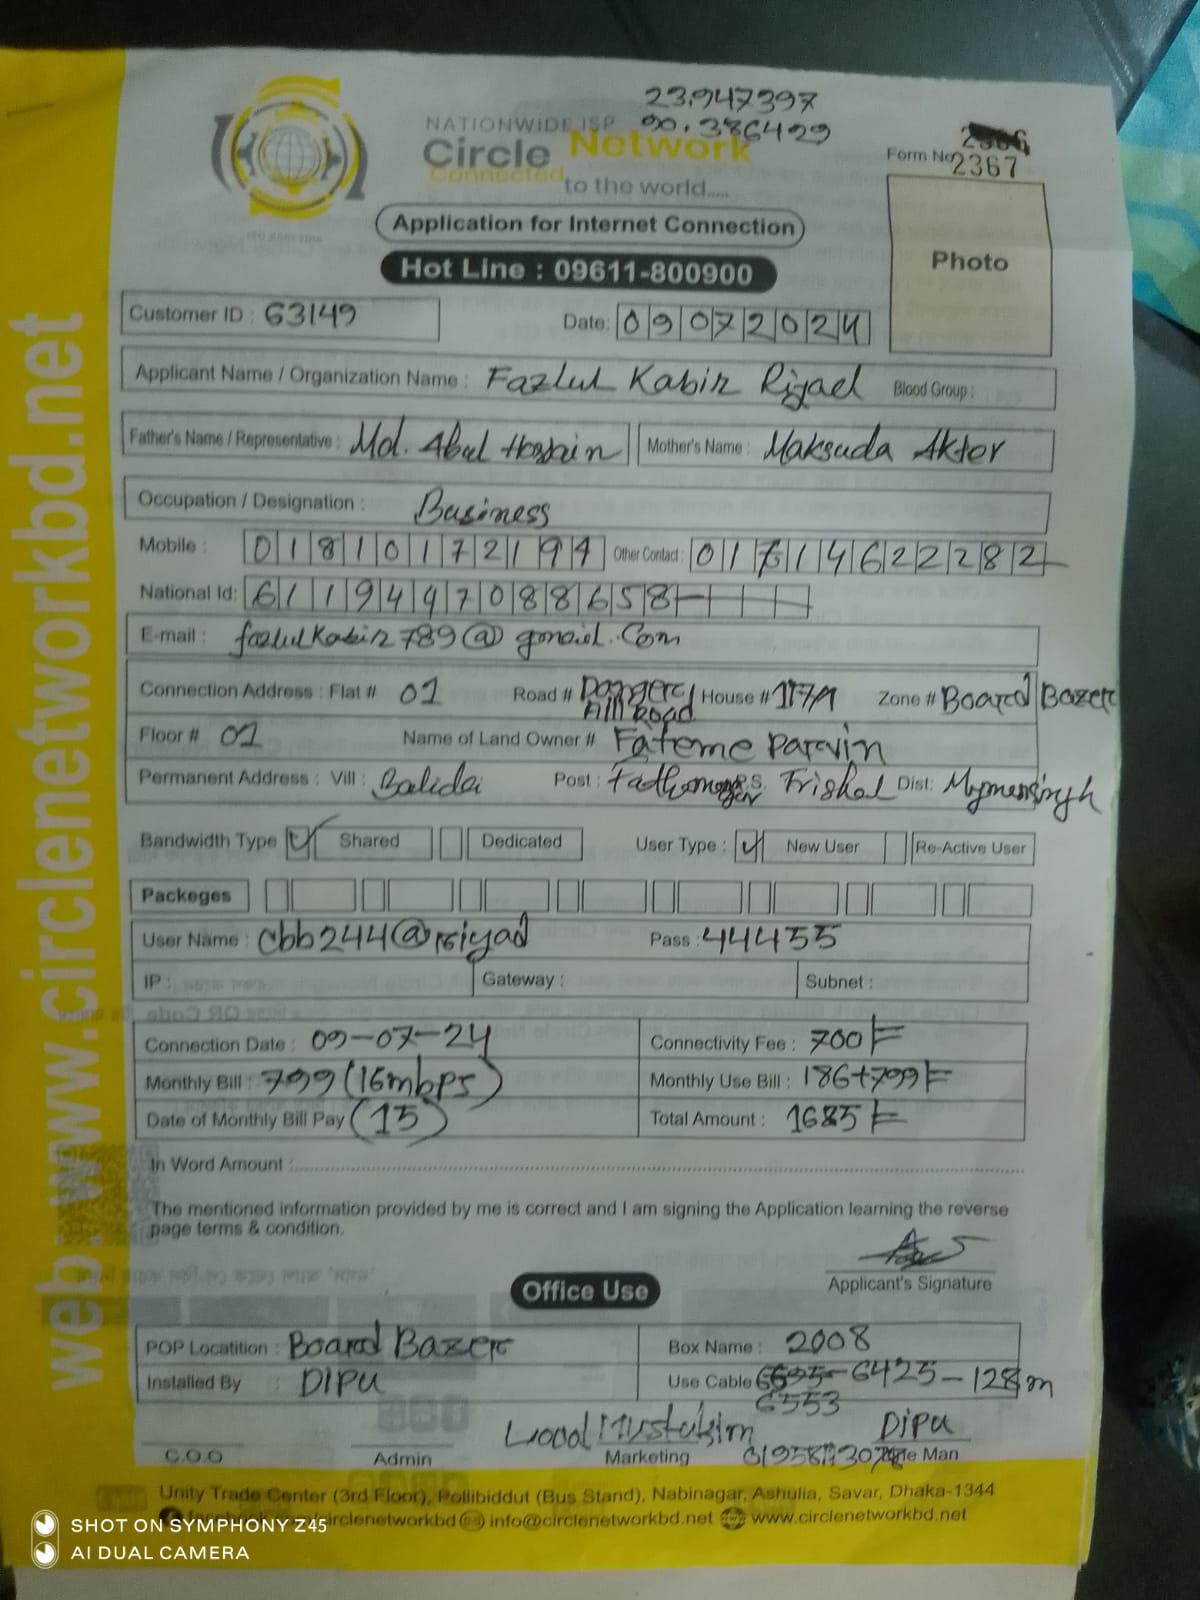 23.947397
90.386429
NATIONWIDE ISP
Circle Network
Connected to the world.....
Form No 2367
Application for Internet Connection
Photo
Hot Line : 09611-800900
Customer ID : 63149
Date: 09072024
Applicant Name / Organization Name : Fazlul Kabir Riyad Blood Group :
Father's Name / Representative : Md. Abul Hossain Mother's Name : Maksuda Akter
Occupation / Designation : Business
Mobile : 01810172194 Other Contact : 01714622282
National Id: 6119447088658
E-mail : fazlulkabir789@gmail.com
Connection Address : Flat # 01 Road # House # 117/A Zone # Board Bazer
Road
Floor # 01 Name of Land Owner # Fateme Parvin
Permanent Address : Vill : Post : P.S. Trishal Dist: Mymensingh
Bandwidth Type Shared Dedicated User Type : New User Re-Active User
Packeges
User Name : cbb244@riyad Pass : 44455
IP : Gateway : Subnet :
Connection Date : 09-07-24 Connectivity Fee : 700/=
Monthly Bill : 799 (16mbps) Monthly Use Bill : 186+799/=
Date of Monthly Bill Pay (15) Total Amount : 1685/=
In Word Amount :
The mentioned information provided by me is correct and I am signing the Application learning the reverse
page terms & condition.
Applicant's Signature
Office Use
POP Locatition : Board Bazer Box Name : 2008
Installed By : DIPU Use Cable 6425-128m
6553
Mustakim DIPU
C.O.O Admin Marketing Man
Unity Trade Center (3rd Floor), Pollibiddut (Bus Stand), Nabinagar, Ashulia, Savar, Dhaka-1344
circlenetworkbd info@circlenetworkbd.net www.circlenetworkbd.net
web: www.circlenetworkbd.net
SHOT ON SYMPHONY Z45
AI DUAL CAMERA